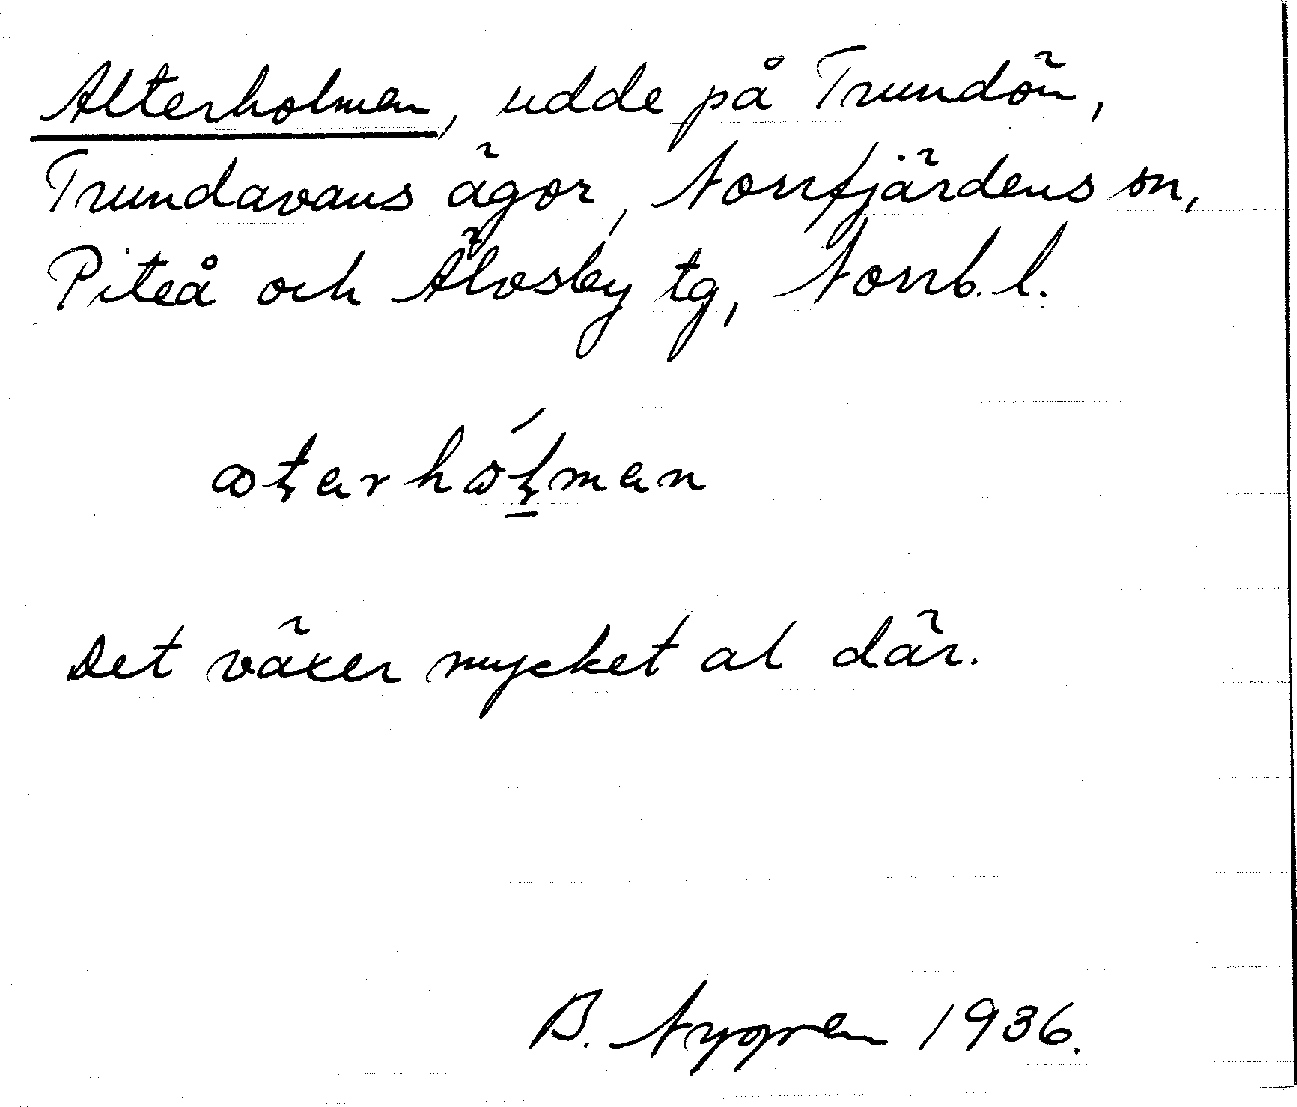 Alterholmen, udde på Trundön,
Trundavans ägor, Norrfjärdens sn,
Piteå och Älvsby tg, Norrb. l.
Det växer mycket al där.
B. Nygren 1936.